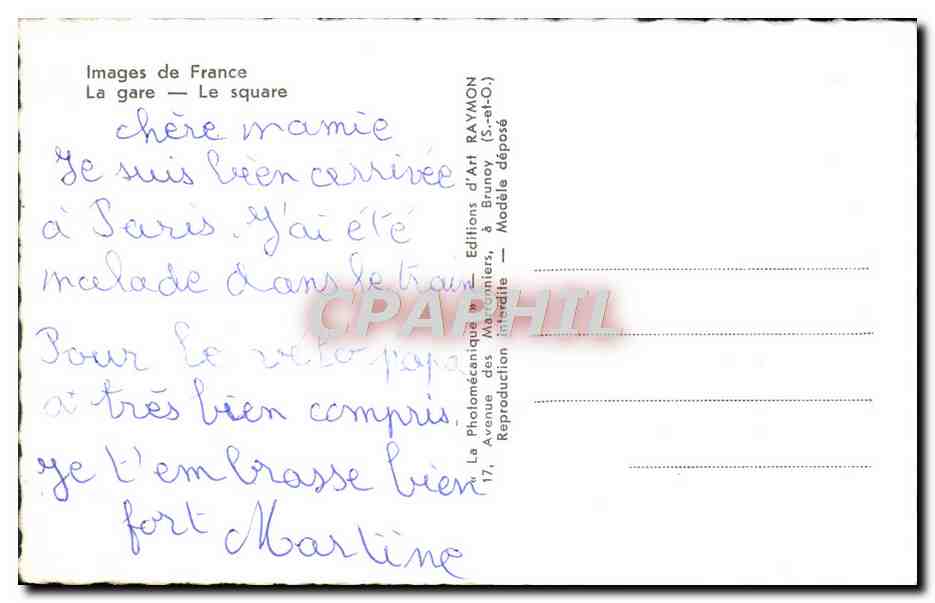 Images de France
La gare — Le square
chère mamie
Je suis bien arrivée
à Paris. J'ai été
malade dans le train
Pour le vélo papa
a très bien compris.
je t'embrasse bien
fort Martine
« La Photomécanique » — Editions d'Art RAYMON
17, Avenue des Marronniers, à Brunoy (S.-et-O.)
Reproduction interdite — Modèle déposé
CPAPHIL